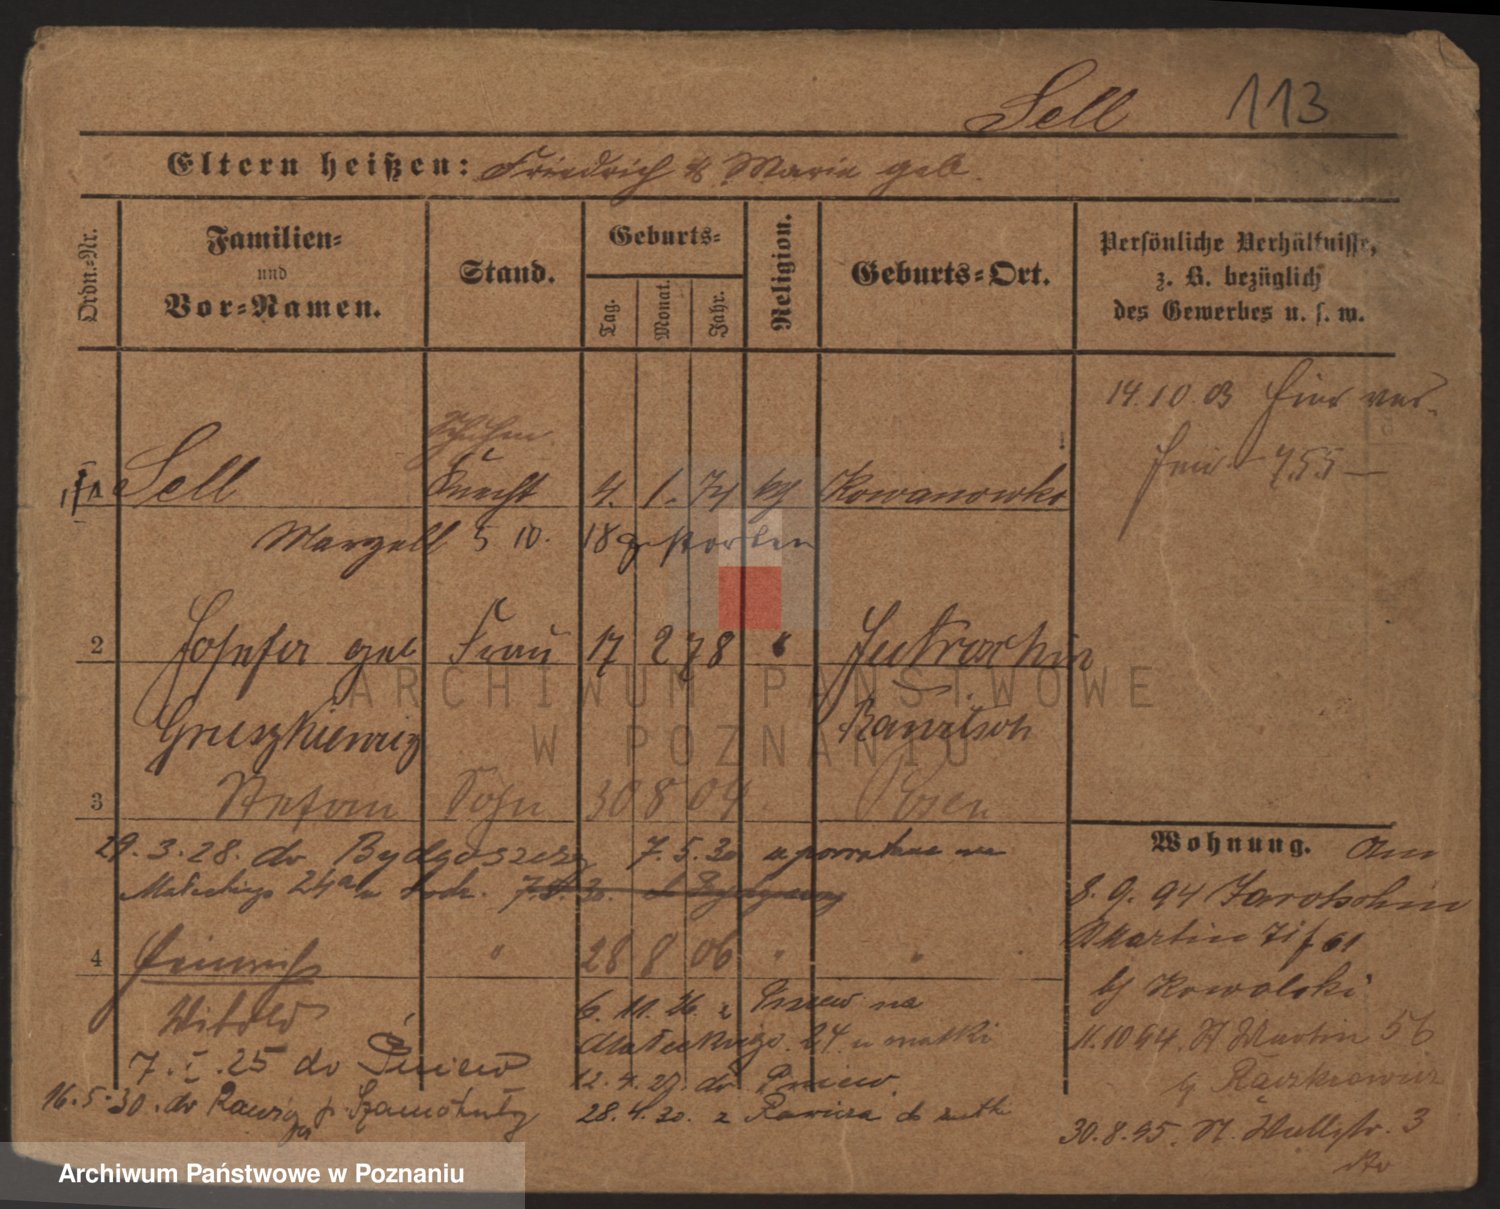 Sell 113
Eltern heißen: Friedrich & Maria geb.
Ordn.-Nr.
Familien- und Vor-Namen.
Stand.
Geburts-
Tag. Monat. Jahr.
Religion.
Geburts-Ort.
Persönliche Verhältnisse, z. B. bezüglich des Gewerbes u. s. w.
14.10.03 hier
7,55 —
1 Sell Knecht 4. 1. 74 kg Kowanowko
Marzell 5 10. 18 gestorben
2 Josefa geb Frau 17 2 78 " Jutroschin
Gruszkiewicz Rawitsch
3 Stefan Sohn 30 8 04 Posen
29.3.28. do Bydgoszczy 7.5.30
Małeckiego 24a 7.5.30.
4 Heinrich " 28 8 06 " "
Witold
6.11.26. z Pniew na
Małeckiego 24 u matki
7.I.25 do Pniew
12.4.27. do Pniew
16.5.30. do Rawicz p. Szamotuły
28.4.30. z Rawicza do matki
Wohnung. Am
8.9.94 Jarotschin
Martin 71 f 61
by Kowalski
11.10 94. St Martin 56
30.8.95. St. Wallstr. 3
ARCHIWUM PAŃSTWOWE
W POZNANIU
Archiwum Państwowe w Poznaniu